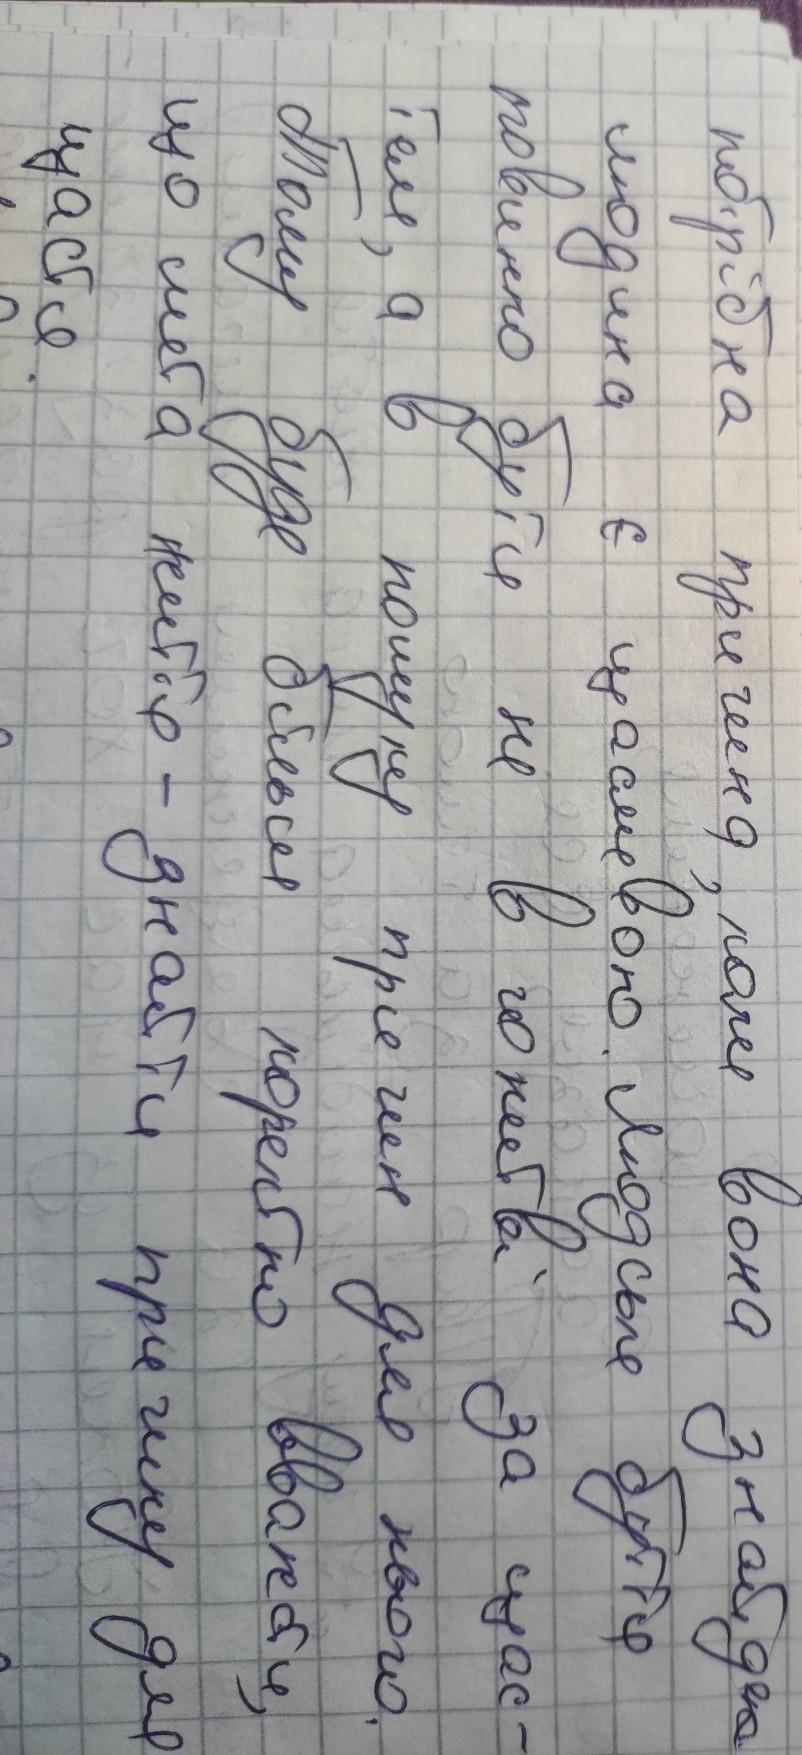 потрібна причина, коли вона знайдена
людина є щасливою. Людське буття
повинно бути не в гонитві за щас-
тям, а в пошуку причин для нього.
Тому буде більш коректно вважати,
що мета життя - знайти причину для
щастя.